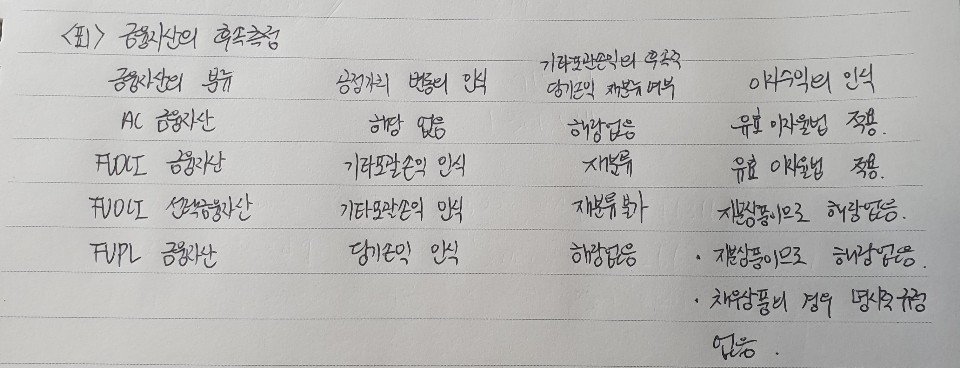 <표1> 금융자산의 후속측정
금융자산의 분류 공정가치 변동의 인식 기타포괄손익의 후속적 당기손익 재분류 여부 이자수익의 인식
AC 금융자산 해당 없음 해당없음 유효 이자율법 적용.
FVOCI 금융자산 기타포괄손익 인식 재분류 유효 이자율법 적용.
FVOCI 선택금융자산 기타포괄손익 인식 재분류 불가 지분상품이므로 해당없음.
FVPL 금융자산 당기손익 인식 해당없음 · 지분상품이므로 해당없음.
· 채무상품의 경우 명시적 규정
없음.